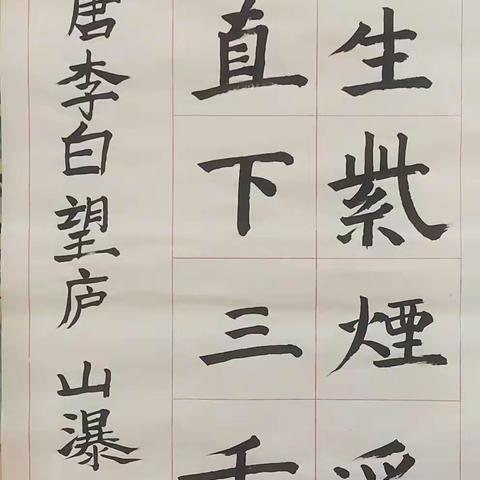 生紫煙
直下三千
唐李白望庐山瀑